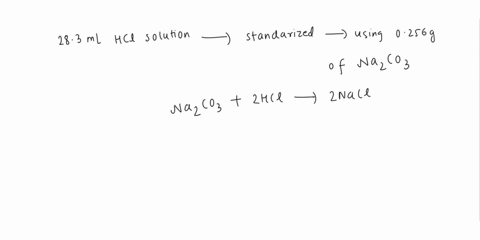 28.3 mL HCl solution ⟶ standarized ⟶ using 0.256g
of Na₂CO₃
Na₂CO₃ + 2HCl ⟶ 2NaCl